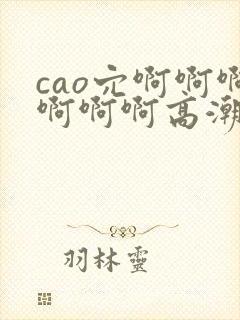 cao穴啊啊啊
啊啊啊高潮
羽林靈